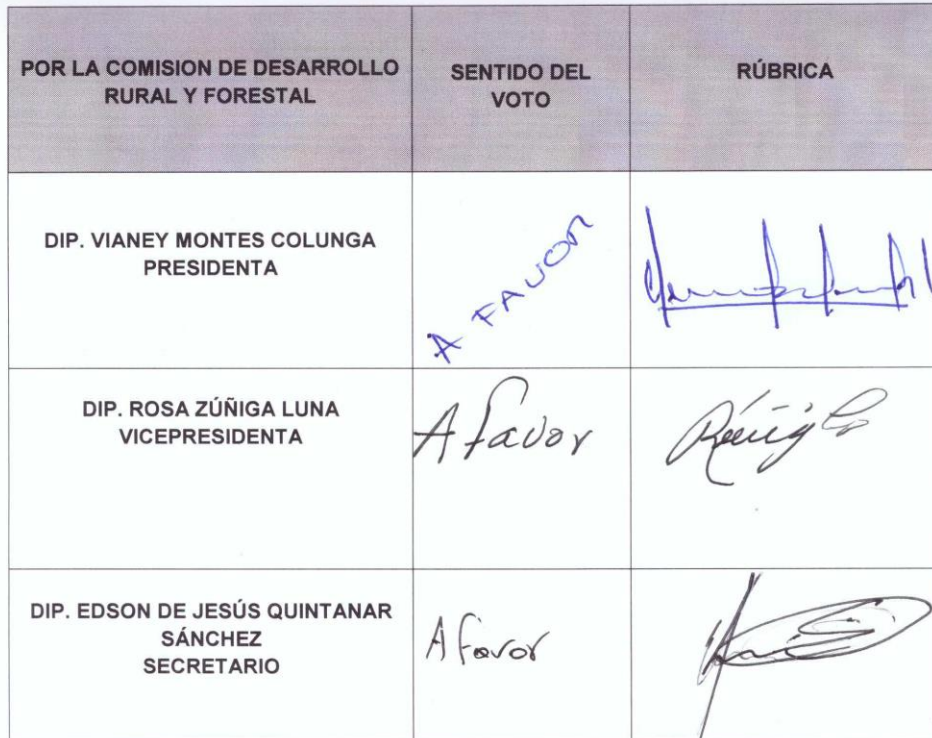 POR LA COMISION DE DESARROLLO
RURAL Y FORESTAL
SENTIDO DEL
VOTO
RÚBRICA
DIP. VIANEY MONTES COLUNGA
PRESIDENTA
A FAVOR
DIP. ROSA ZÚÑIGA LUNA
VICEPRESIDENTA
A favor
DIP. EDSON DE JESÚS QUINTANAR
SÁNCHEZ
SECRETARIO
A favor